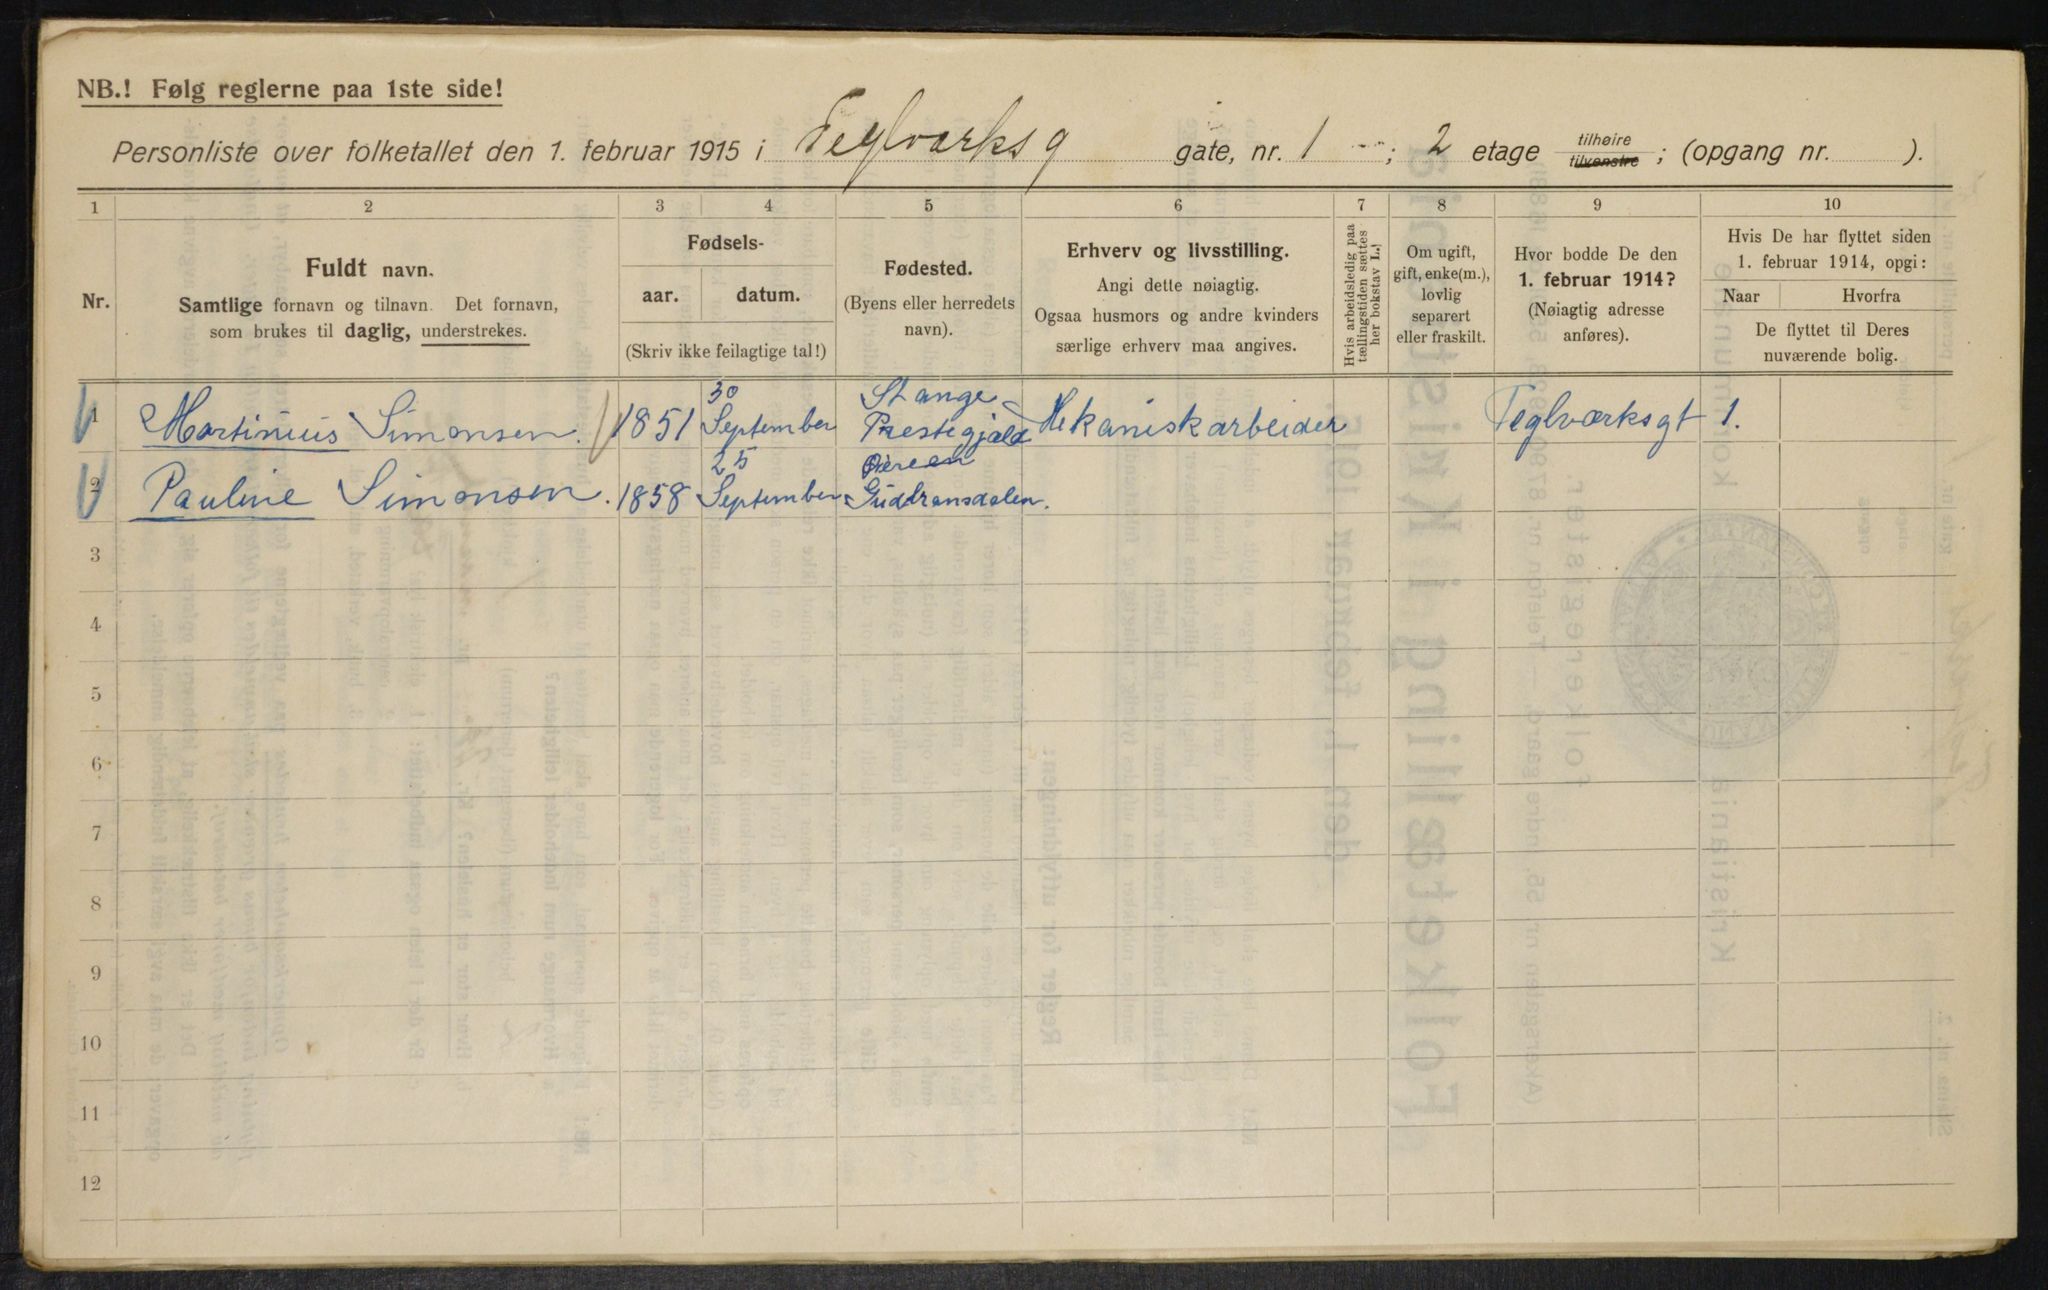 NB.! Følg reglerne paa 1ste side!
Personliste over folketallet den 1. februar 1915 i Teglværksg gate, nr. 1 ; 2 etage tilhøire tilvenstre ; (opgang nr. ).
1 2 3 4 5 6 7 8 9 10
Nr.
Fuldt navn.
Samtlige fornavn og tilnavn. Det fornavn,
som brukes til daglig, understrekes.
Fødsels-
aar. datum.
(Skriv ikke feilagtige tal!)
Fødested.
(Byens eller herredets
navn).
Erhverv og livsstilling.
Angi dette nøiagtig.
Ogsaa husmors og andre kvinders
særlige erhverv maa angives.
Hvis arbeidsledig paa
tællingstiden sættes
her bokstav L.!
Om ugift,
gift, enke(m.),
lovlig
separert
eller fraskilt.
Hvor bodde De den
1. februar 1914?
(Nøiagtig adresse
anføres).
Hvis De har flyttet siden
1. februar 1914, opgi:
Naar Hvorfra
De flyttet til Deres
nuværende bolig.
30 Stange
1 Martinius Simonsen. 1851 September Prestegjæld Mekaniskarbeider Teglværksgt 1.
25
2 Pauline Simonsen. 1858 September Gudbransdalen.
3
4
5
6
7
8
9
10
11
12